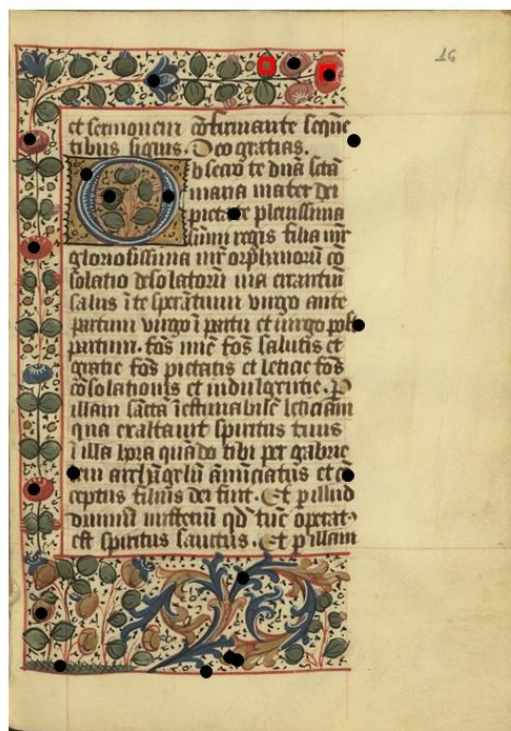 16
et sermonem cōfirmante seque
tibus signis. Deo gratias.
Obsecro te dn̄a sctā
maria mater dei
pietate plenissima
sūmi regis filia mr̄
gloriosissima mr̄ orphanorū cō
solatio desolatorū uia errantiū
salus ī te sperātium virgo ante
partum virgo ī partu et virgo post
partum. fōs mīe fōs salutis et
gratie fōs pietatis et leticie fōs
cōsolationis et indulgentie. P
illam sāctā īestimabilē leticiam
qua exaltauit spiritus tuus
ī illa hora quādo tibi per gabrie
em archāgelū ānūciatus et cō
ceptus filius dei fuit. Et p illud
diuinū misteriū qd̄ tūc operat
est spiritus sanctus. Et p illam